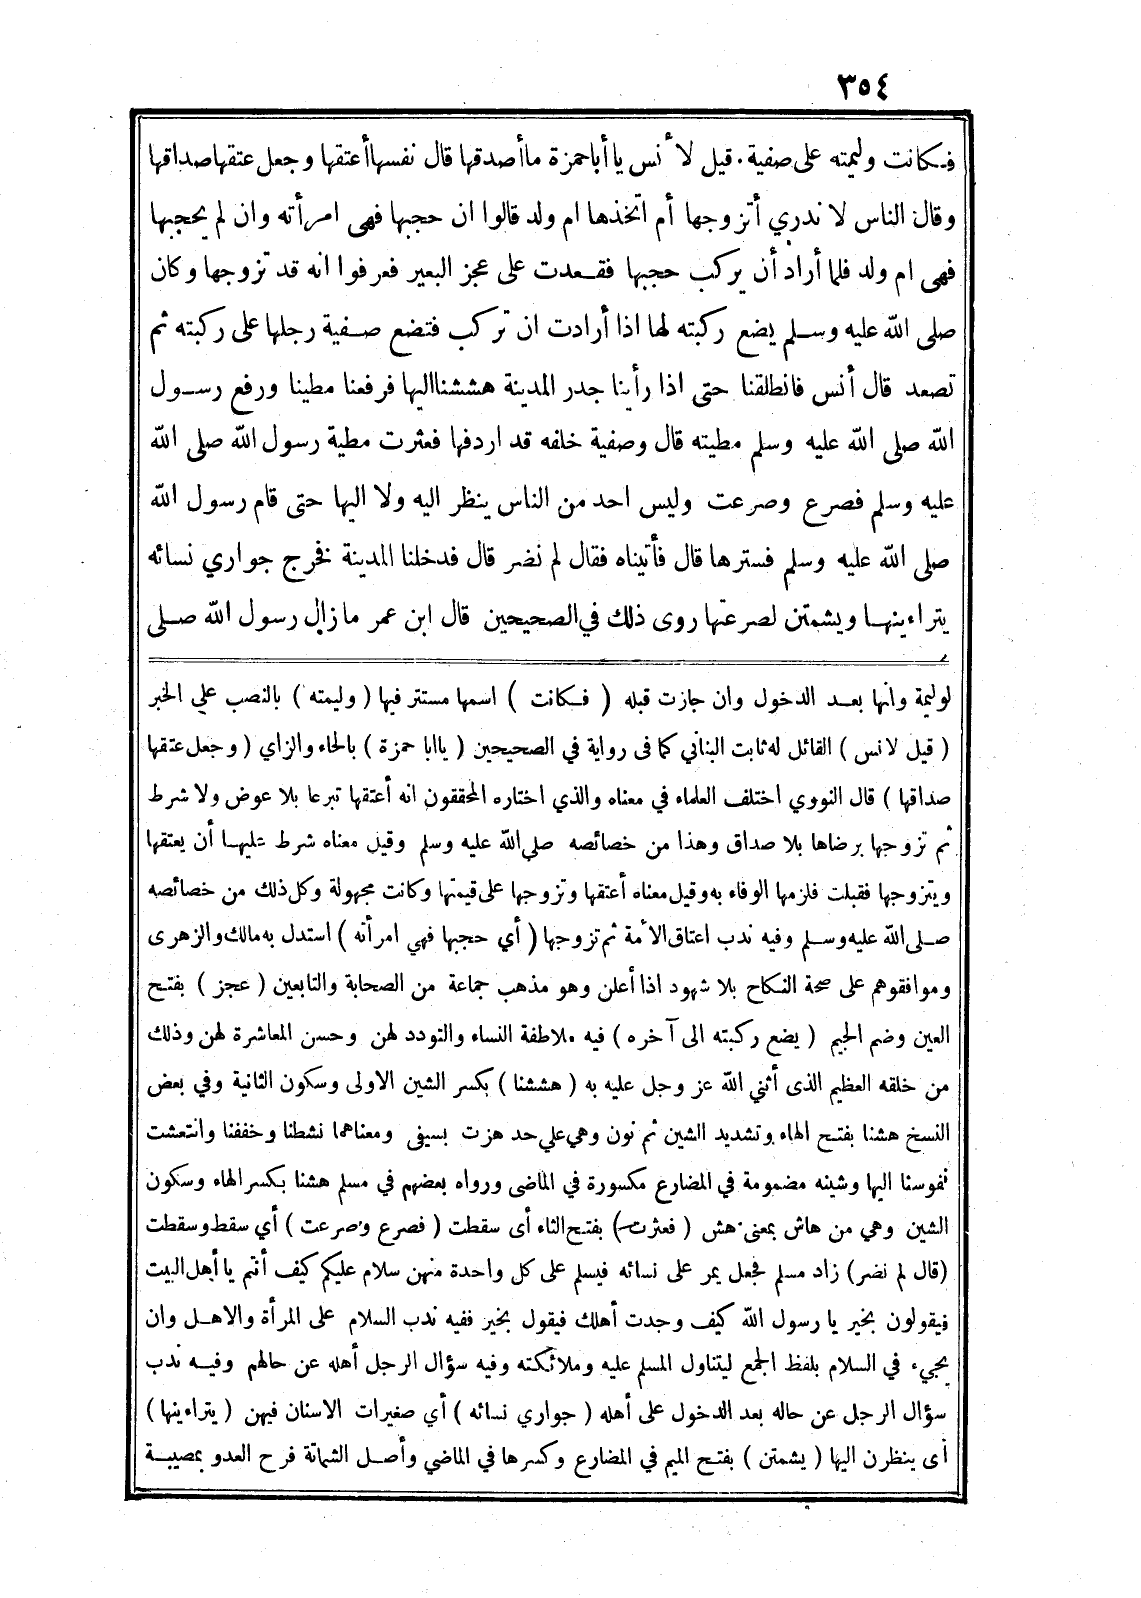 ٣٥٤
فكانت وليمته على صفية . قيل لأنس يا أباحمزة ماأصدقها قال نفسهاأعتقها وجعل عتقهاصداقها
وقال الناس لا ندري أتزوجها أم اتخذها ام ولد قالوا ان حجبها فهى امرأته وان لم يحجبها
فهى ام ولد فلما أراد أن يركب حجبها فقعدت على عجز البعير فعرفوا انه قد تزوجها وكان
صلى الله عليه وسلم يضع ركبته لها اذا أرادت ان تركب فتضع صفية رجلها على ركبته ثم
تصعد قال أنس فانطلقنا حتى اذا رأينا جدر المدينة هششنااليها فرفعنا مطينا ورفع رسول
الله صلى الله عليه وسلم مطيته قال وصفية خلفه قد اردفها فعثرت مطية رسول الله صلى الله
عليه وسلم فصرع وصرعت وليس احد من الناس ينظر اليه ولا اليها حتى قام رسول الله
صلى الله عليه وسلم فسترها قال فأتيناه فقال لم نضر قال فدخلنا المدينة فخرج جواري نسائه
يتراءينها ويشمتن لصرعتها روى ذلك في الصحيحين قال ابن عمر مازال رسول الله صلى
لوليمة وانها بعد الدخول وان جازت قبله ( فكانت ) اسمها مستتر فيها ( وليمته ) بالنصب على الخبر
( قيل لانس ) القائل له ثابت البناني كما فى رواية في الصحيحين ( ياابا حمزة ) بالحاء والزاي ( وجعل عتقها
صداقها ) قال النووي اختلف العلماء في معناه والذي اختاره المحققون انه أعتقها تبرعا بلا عوض ولا شرط
ثم تزوجها برضاها بلا صداق وهذا من خصائصه صلى الله عليه وسلم وقيل معناه شرط عليها أن يعتقها
ويتزوجها فقبلت فلزمها الوفاء به وقيل معناه أعتقها وتزوجها على قيمتها وكانت مجهولة وكل ذلك من خصائصه
صلى الله عليه وسلم وفيه ندب اعتاق الأمة ثم تزوجها ( أي حجبها فهي امرأته ) استدل به مالك والزهرى
وموافقوهم على صحة النكاح بلا شهود اذا أعلن وهو مذهب جماعة من الصحابة والتابعين ( عجز ) بفتح
العين وضم الجيم ( يضع ركبته الى آخره ) فيه ملاطفة النساء والتودد لهن وحسن المعاشرة لهن وذلك
من خلقه العظيم الذى أثني الله عز وجل عليه به ( هششنا ) بكسر الشين الاولى وسكون الثانية وفي بعض
النسخ هشنا بفتح الهاء وتشديد الشين ثم نون وهي على حد هزت بسيفى ومعناهما نشطنا وخففنا وانتعشت
نفوسنا اليها وشينه مضمومة في المضارع مكسورة في الماضى ورواه بعضهم في مسلم هشنا بكسر الهاء وسكون
الشين وهي من هاش بمعنى هش ( فعثرت ) بفتح الثاء أى سقطت ( فصرع وصرعت ) أي سقط وسقطت
(قال لم نضر) زاد مسلم فجعل يمر على نسائه فيسلم على كل واحدة منهن سلام عليكم كيف أنتم يا أهل البيت
فيقولون بخير يا رسول الله كيف وجدت أهلك فيقول بخير ففيه ندب السلام على المرأة والاهل وان
يجيء في السلام بلفظ الجمع ليتناول المسلم عليه وملائكته وفيه سؤال الرجل أهله عن حالهم وفيه ندب
سؤال الرجل عن حاله بعد الدخول على أهله ( جواري نسائه ) أي صغيرات الاسنان فيهن ( يتراءينها )
أى ينظرن اليها ( يشمتن ) بفتح الميم في المضارع وكسرها في الماضي وأصل الشماتة فرح العدو بمصيبة